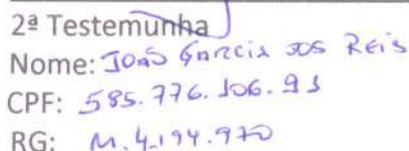 2ª Testemunha
Nome: João Garcia dos Reis
CPF: 585.776.106.91
RG: M.4.194.970